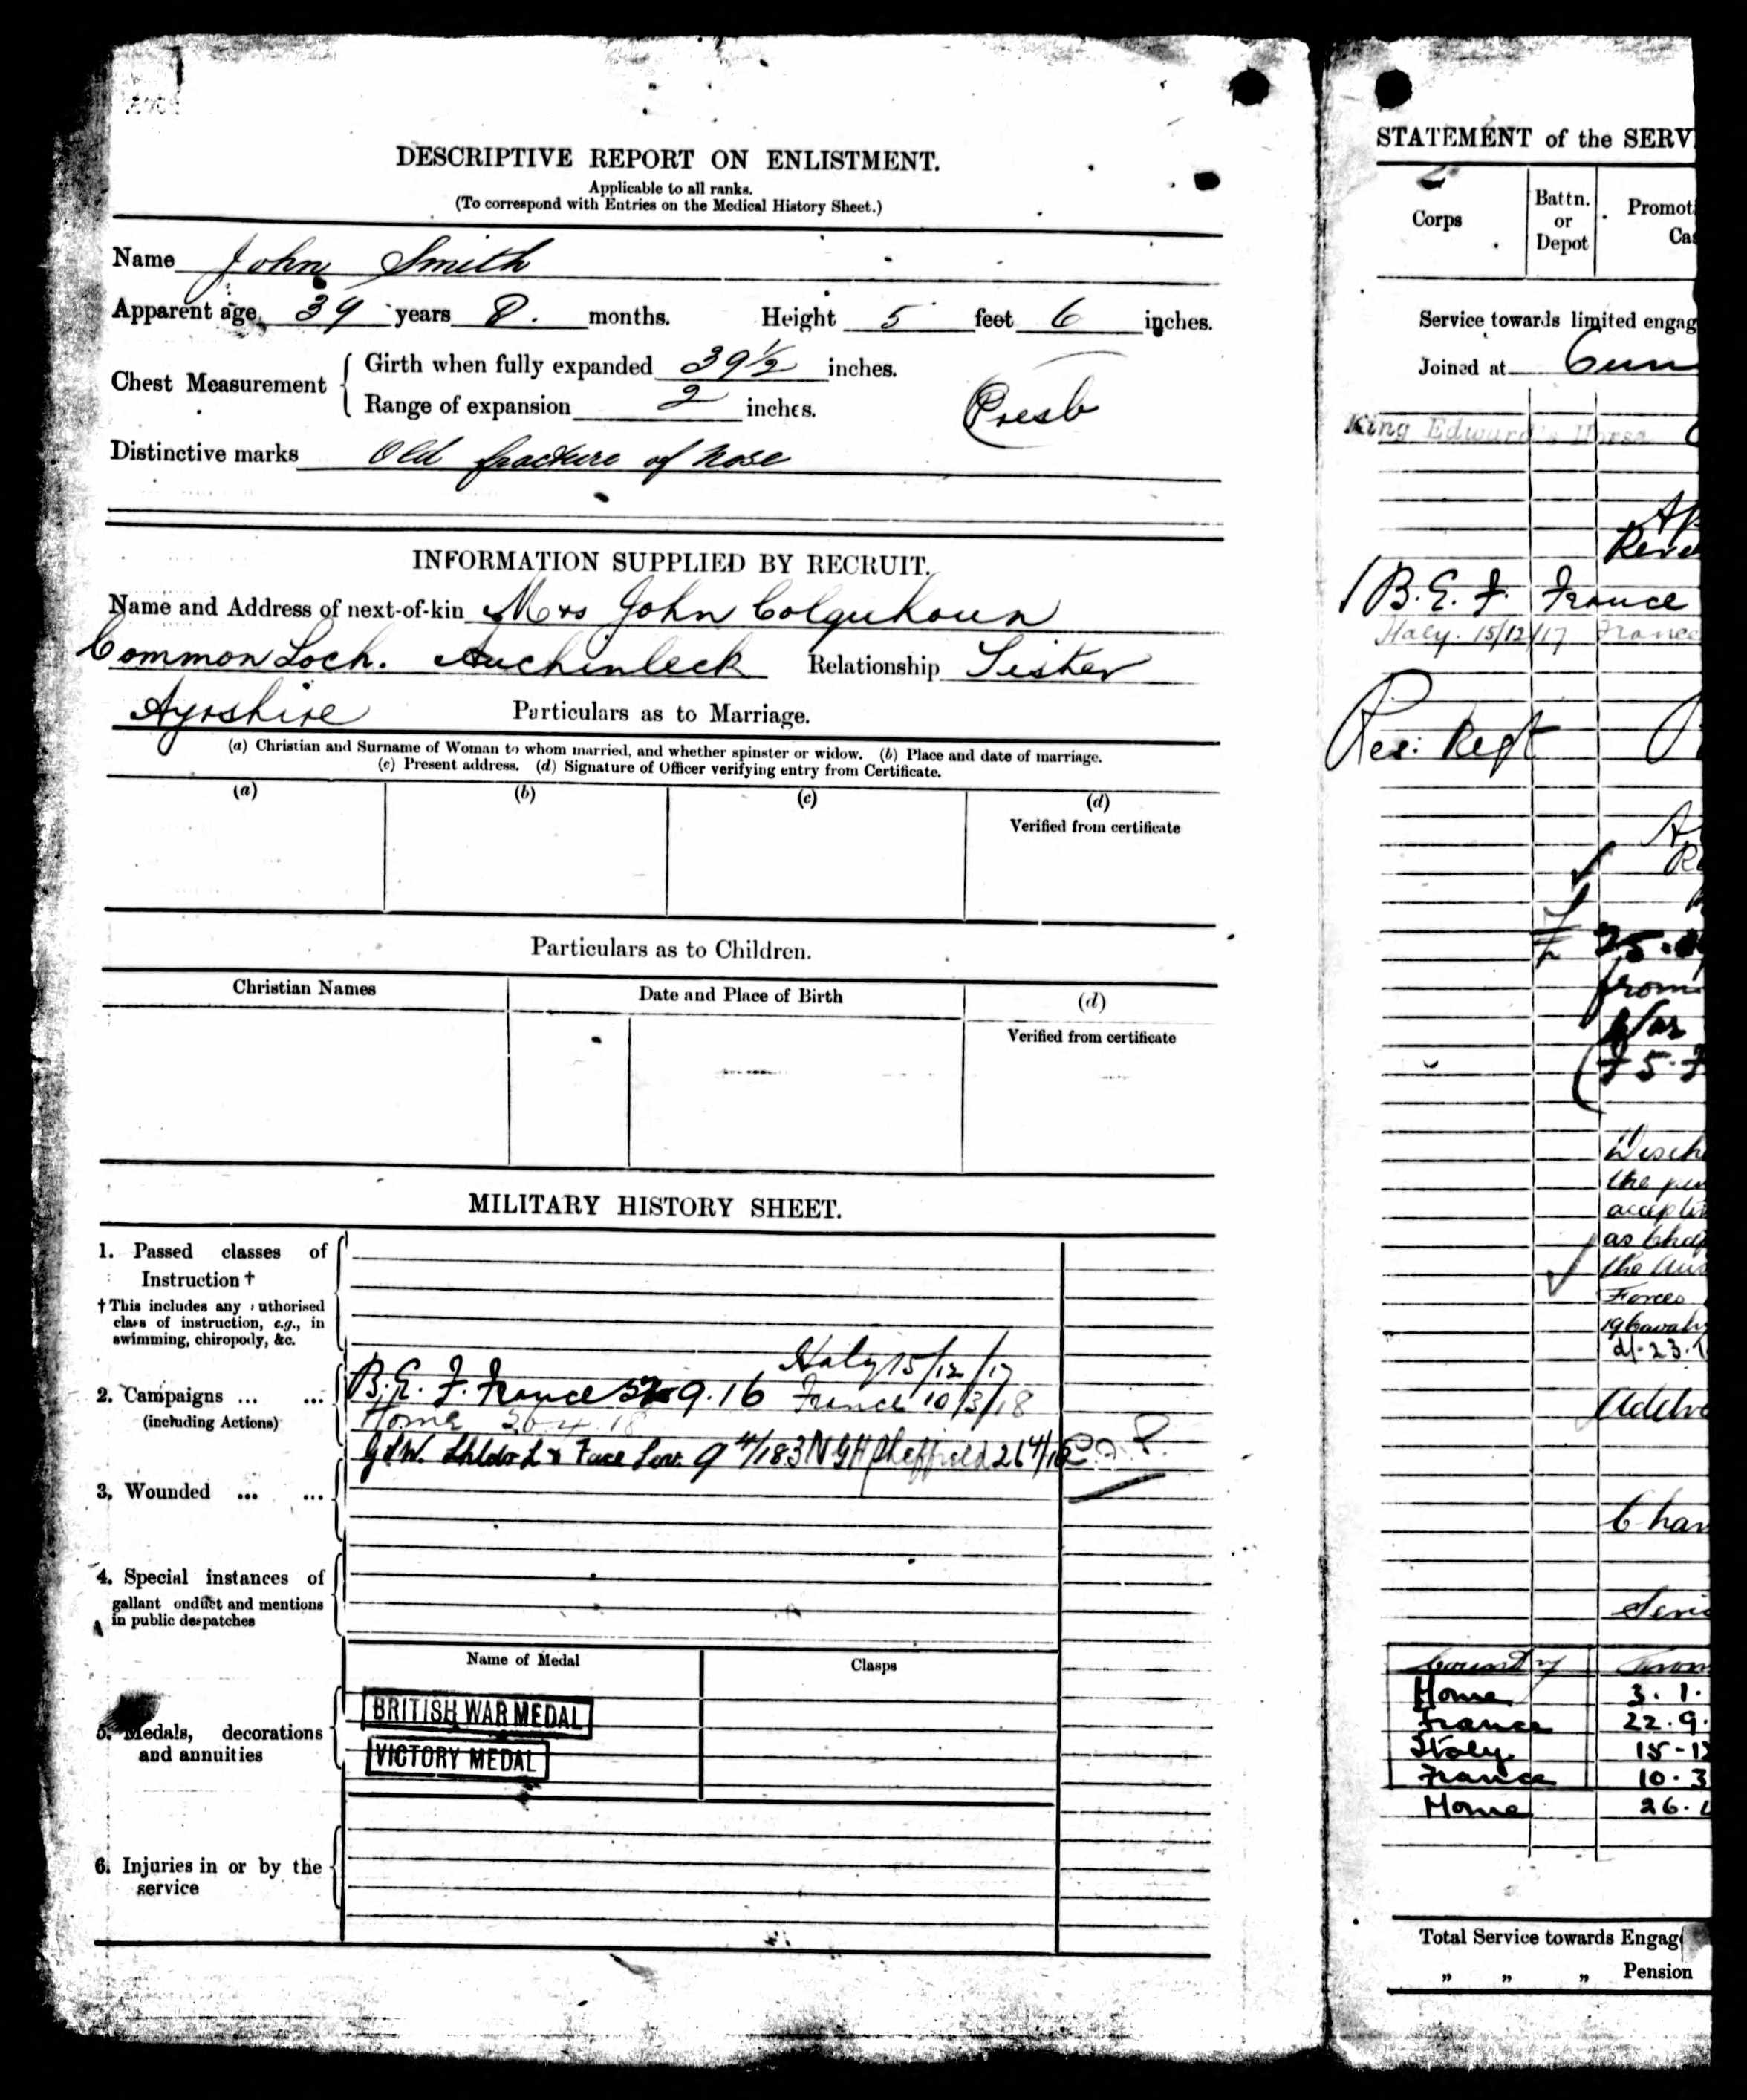 DESCRIPTIVE REPORT ON ENLISTMENT.
Applicable to all ranks.
(To correspond with Entries on the Medical History Sheet.)
Name John Smith
Apparent age 39 years 8. months. Height 5 feet 6 inches.
Chest Measurement
Girth when fully expanded 39½ inches.
Range of expansion 2 inches.
Presb
Distinctive marks Old fracture of nose
INFORMATION SUPPLIED BY RECRUIT.
Name and Address of next-of-kin Mrs John Colquhoun
Common Loch. Auchinleck Relationship Sister
Ayrshire
Particulars as to Marriage.
(a) Christian and Surname of Woman to whom married, and whether spinster or widow. (b) Place and date of marriage.
(c) Present address. (d) Signature of Officer verifying entry from Certificate.
(a) (b) (c) (d)
Verified from certificate
Particulars as to Children.
Christian Names Date and Place of Birth (d)
Verified from certificate
MILITARY HISTORY SHEET.
1. Passed classes of
Instruction †
† This includes any uthorised
class of instruction, e.g., in
swimming, chiropody, &c.
Italy 15/12/17
2. Campaigns ... ...
(including Actions)
B.E.F. France 9.16 France 10/3/18
Home 26 4 18
GSW. Shldr L & Face Sev. 9 4/18 3NGH Sheffield 26 4/18
3. Wounded ... ...
4. Special instances of
gallant onduct and mentions
in public despatches
Name of Medal Clasps
5. Medals, decorations
and annuities
BRITISH WAR MEDAL
VICTORY MEDAL
6. Injuries in or by the
service
STATEMENT of the SERV
Corps
Battn.
or
Depot
Promot
Ca
Service towards limited engag
Joined at
King Edward's Horse
B.E.F. France
Italy. 15/12/17 France
Res: Regt
25.
from
War
Disch
the
as
the
Forces
d/- 23.
Char
Country From
Home 3. 1.
France 22. 9.
Italy 15-1
France 10. 3
Home 26.
Total Service towards Engag
„ „ „ Pension